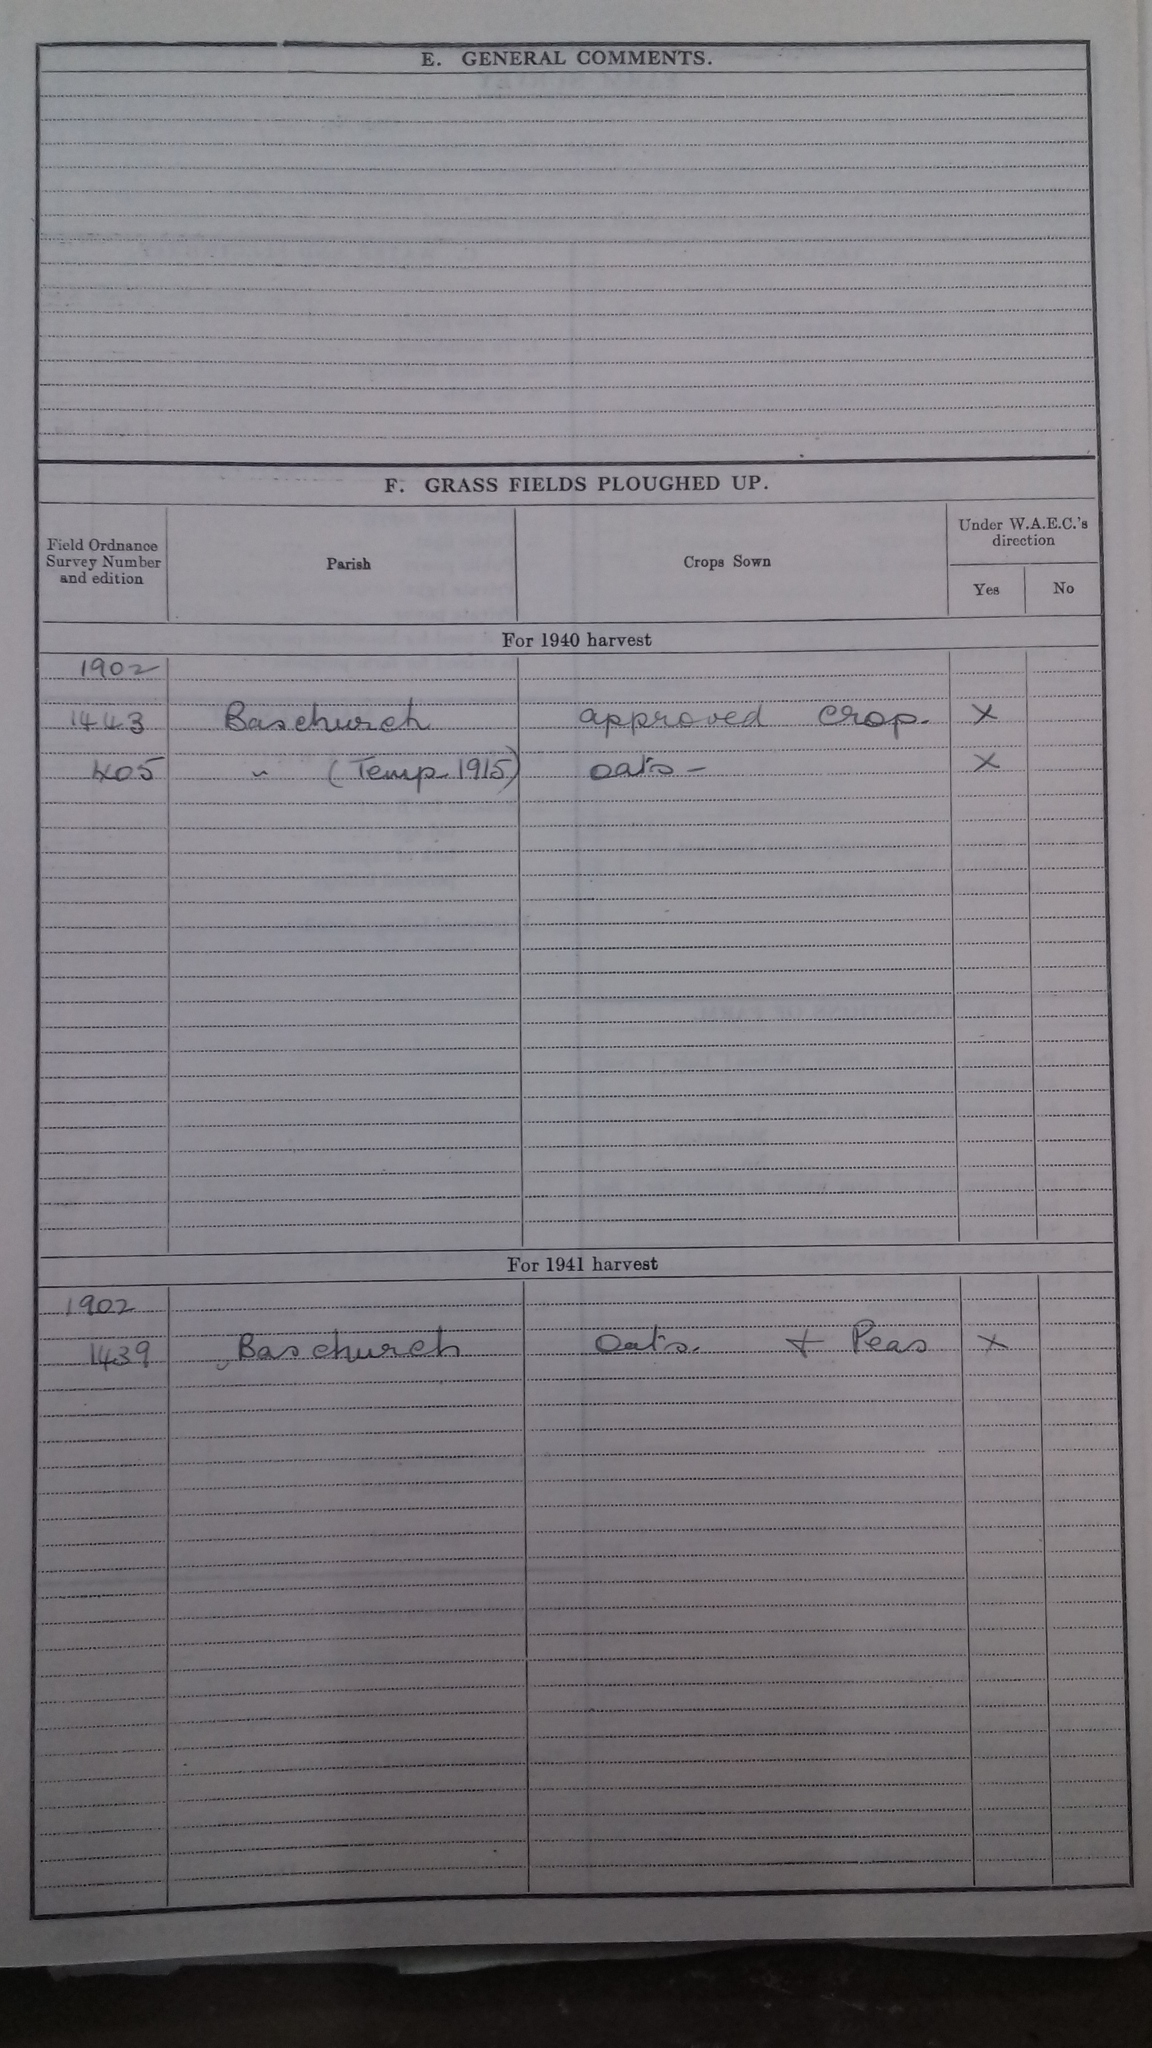 E. GENERAL COMMENTS.
F. GRASS FIELDS PLOUGHED UP.
Field Ordnance Survey Number and edition
Parish
Crops Sown
Under W.A.E.C.'s direction
Yes
No
For 1940 harvest
1902
1443 Baschurch approved crop. X
405 " (Temp. 1915) oats - X
For 1941 harvest
1902
1439 Baschurch Oats. + Peas X